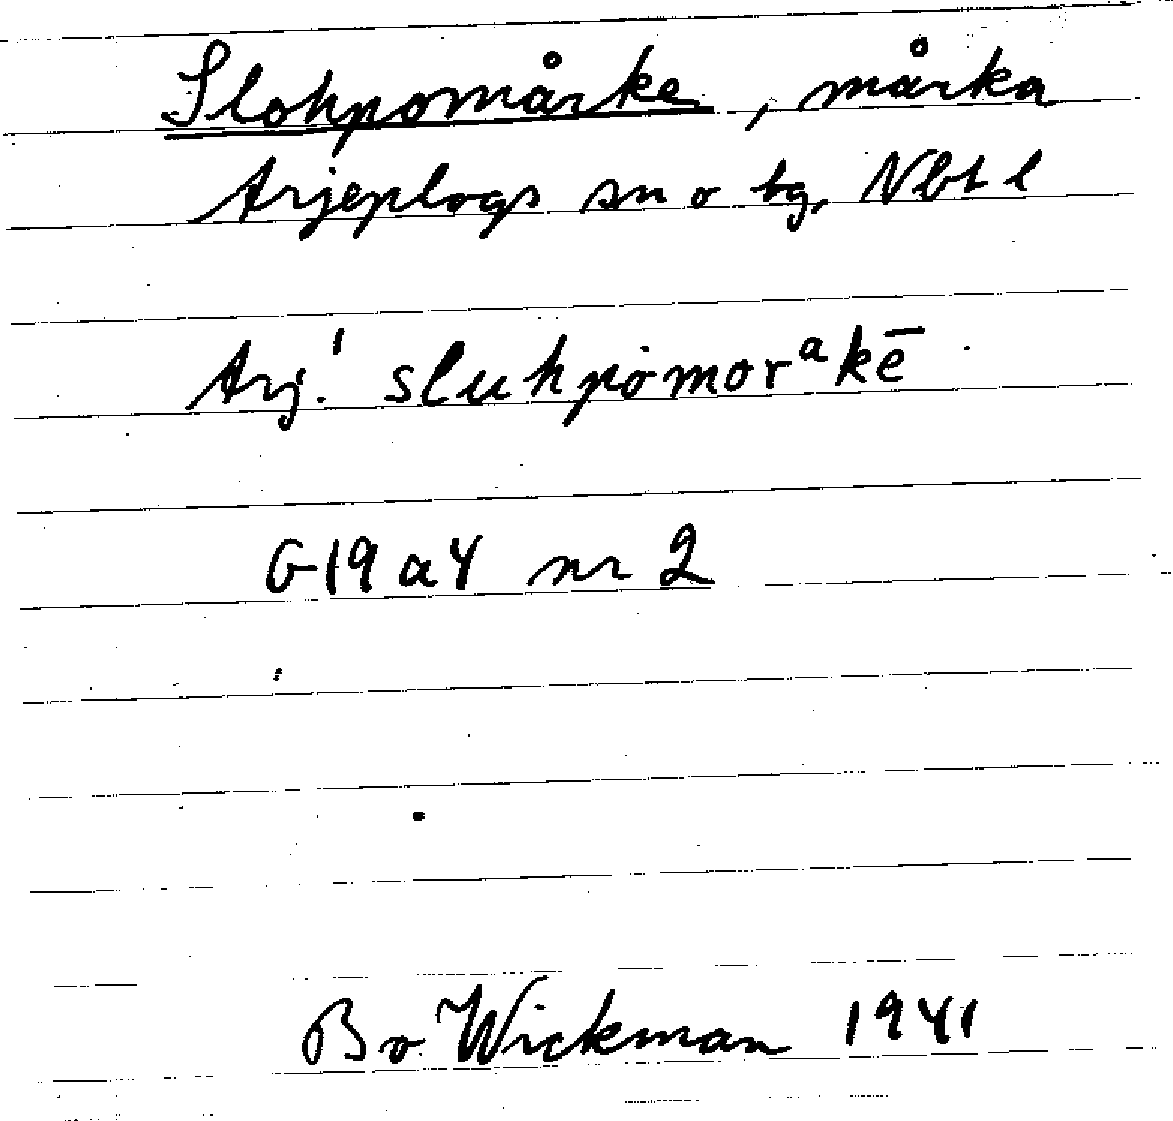 Slohpomårke, mårka
Arjeplogs sn o tg, Nbt l
Arj.ˈ sluhpȯmorᵃkē
G19a4 nr 2
Bo Wickman 1941